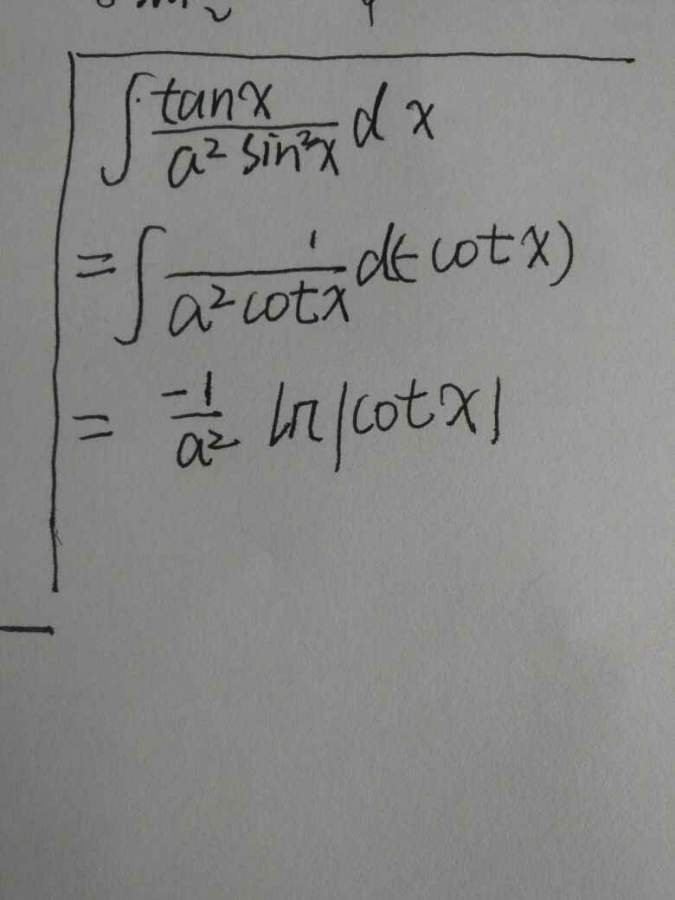 ∫ tanx / a² sin²x dx
= ∫ 1 / a² cotx d(-cotx)
= -1 / a² ln|cotx|